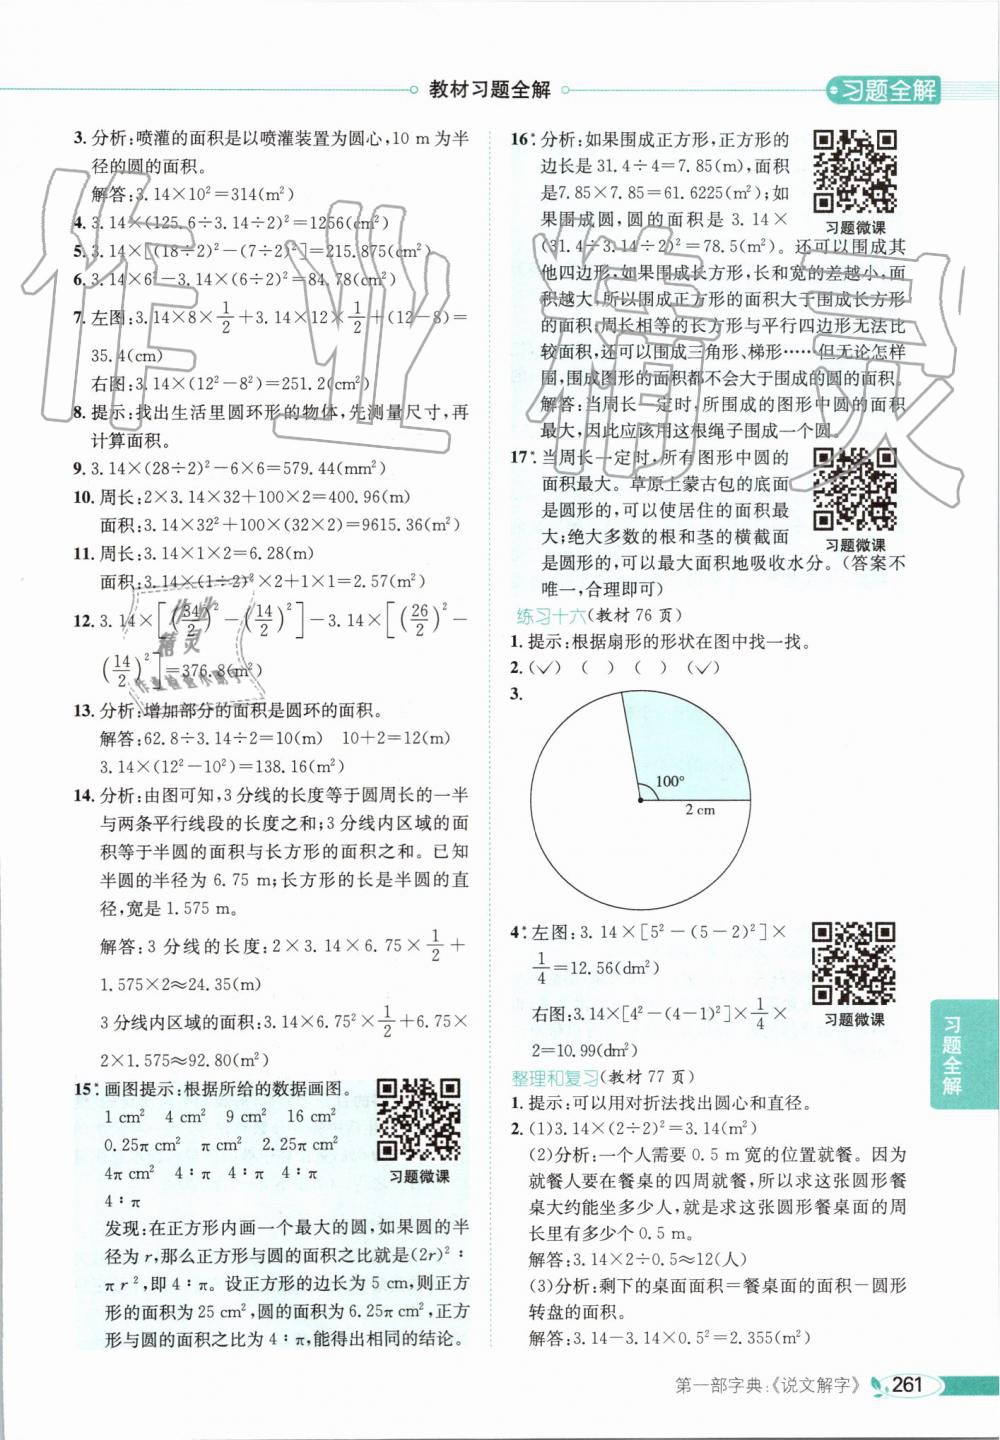 教材习题全解
习题全解
3. 分析:喷灌的面积是以喷灌装置为圆心,10 m为半
径的圆的面积。
解答:3.14×10²=314(m²)
4. 3.14×(125.6÷3.14÷2)²=1256(cm²)
5. 3.14×[(18÷2)²-(7÷2)²]=215.875(cm²)
6. 3.14×6²-3.14×(6÷2)²=84.78(cm²)
7. 左图:3.14×8×1/2+3.14×12×1/2+(12-8)=
35.4(cm)
右图:3.14×(12²-8²)=251.2(cm²)
8. 提示:找出生活里圆环形的物体,先测量尺寸,再
计算面积。
9. 3.14×(28÷2)²-6×6=579.44(mm²)
10. 周长:2×3.14×32+100×2=400.96(m)
面积:3.14×32²+100×(32×2)=9615.36(m²)
11. 周长:3.14×1×2=6.28(m)
面积:3.14×(1÷2)²×2+1×1=2.57(m²)
12. 3.14×[(34/2)²-(14/2)²]-3.14×[(26/2)²-
(14/2)²]=376.8(m²)
13. 分析:增加部分的面积是圆环的面积。
解答:62.8÷3.14÷2=10(m) 10+2=12(m)
3.14×(12²-10²)=138.16(m²)
14. 分析:由图可知,3分线的长度等于圆周长的一半
与两条平行线段的长度之和;3分线内区域的面
积等于半圆的面积与长方形的面积之和。已知
半圆的半径为6.75 m;长方形的长是半圆的直
径,宽是1.575 m。
解答:3分线的长度:2×3.14×6.75×1/2+
1.575×2≈24.35(m)
3分线内区域的面积:3.14×6.75²×1/2+6.75×
2×1.575≈92.80(m²)
15*. 画图提示:根据所给的数据画图。
1 cm² 4 cm² 9 cm² 16 cm²
0.25π cm² π cm² 2.25π cm²
4π cm² 4∶π 4∶π 4∶π
4∶π
习题微课
发现:在正方形内画一个最大的圆,如果圆的半
径为r,那么正方形与圆的面积之比就是(2r)²∶
πr²,即4∶π。设正方形的边长为5 cm,则正方
形的面积为25 cm²,圆的面积为6.25π cm²,正方
形与圆的面积之比为4∶π,能得出相同的结论。
16*. 分析:如果围成正方形,正方形的
边长是31.4÷4=7.85(m),面积
是7.85×7.85=61.6225(m²);如
果围成圆,圆的面积是3.14×
习题微课
(31.4÷3.14÷2)²=78.5(m²)。还可以围成其
他四边形,如果围成长方形,长和宽的差越小,面
积越大,所以围成正方形的面积大于围成长方形
的面积,周长相等的长方形与平行四边形无法比
较面积,还可以围成三角形、梯形……但无论怎样
围,围成图形的面积都不会大于围成的圆的面积。
解答:当周长一定时,所围成的图形中圆的面积
最大,因此应该用这根绳子围成一个圆。
17*. 当周长一定时,所有图形中圆的
面积最大。草原上蒙古包的底面
是圆形的,可以使居住的面积最
大;绝大多数的根和茎的横截面
习题微课
是圆形的,可以最大面积地吸收水分。(答案不
唯一,合理即可)
练习十六(教材76页)
1. 提示:根据扇形的形状在图中找一找。
2. (✓) ( ) ( ) (✓)
3.
100°
2 cm
4*. 左图:3.14×[5²-(5-2)²]×
1/4=12.56(dm²)
右图:3.14×[4²-(4-1)²]×1/4×
2=10.99(dm²)
习题微课
整理和复习(教材77页)
1. 提示:可以用对折法找出圆心和直径。
2. (1)3.14×(2÷2)²=3.14(m²)
(2)分析:一个人需要0.5 m宽的位置就餐。因为
就餐人要在餐桌的四周就餐,所以求这张圆形餐
桌大约能坐多少人,就是求这张圆形餐桌的周
长里有多少个0.5 m。
解答:3.14×2÷0.5≈12(人)
(3)分析:剩下的桌面面积=餐桌面的面积-圆形
转盘的面积。
解答:3.14-3.14×0.5²=2.355(m²)
习题全解
第一部字典:《说文解字》
261
作业精灵
作业
精灵
作业检查小助手